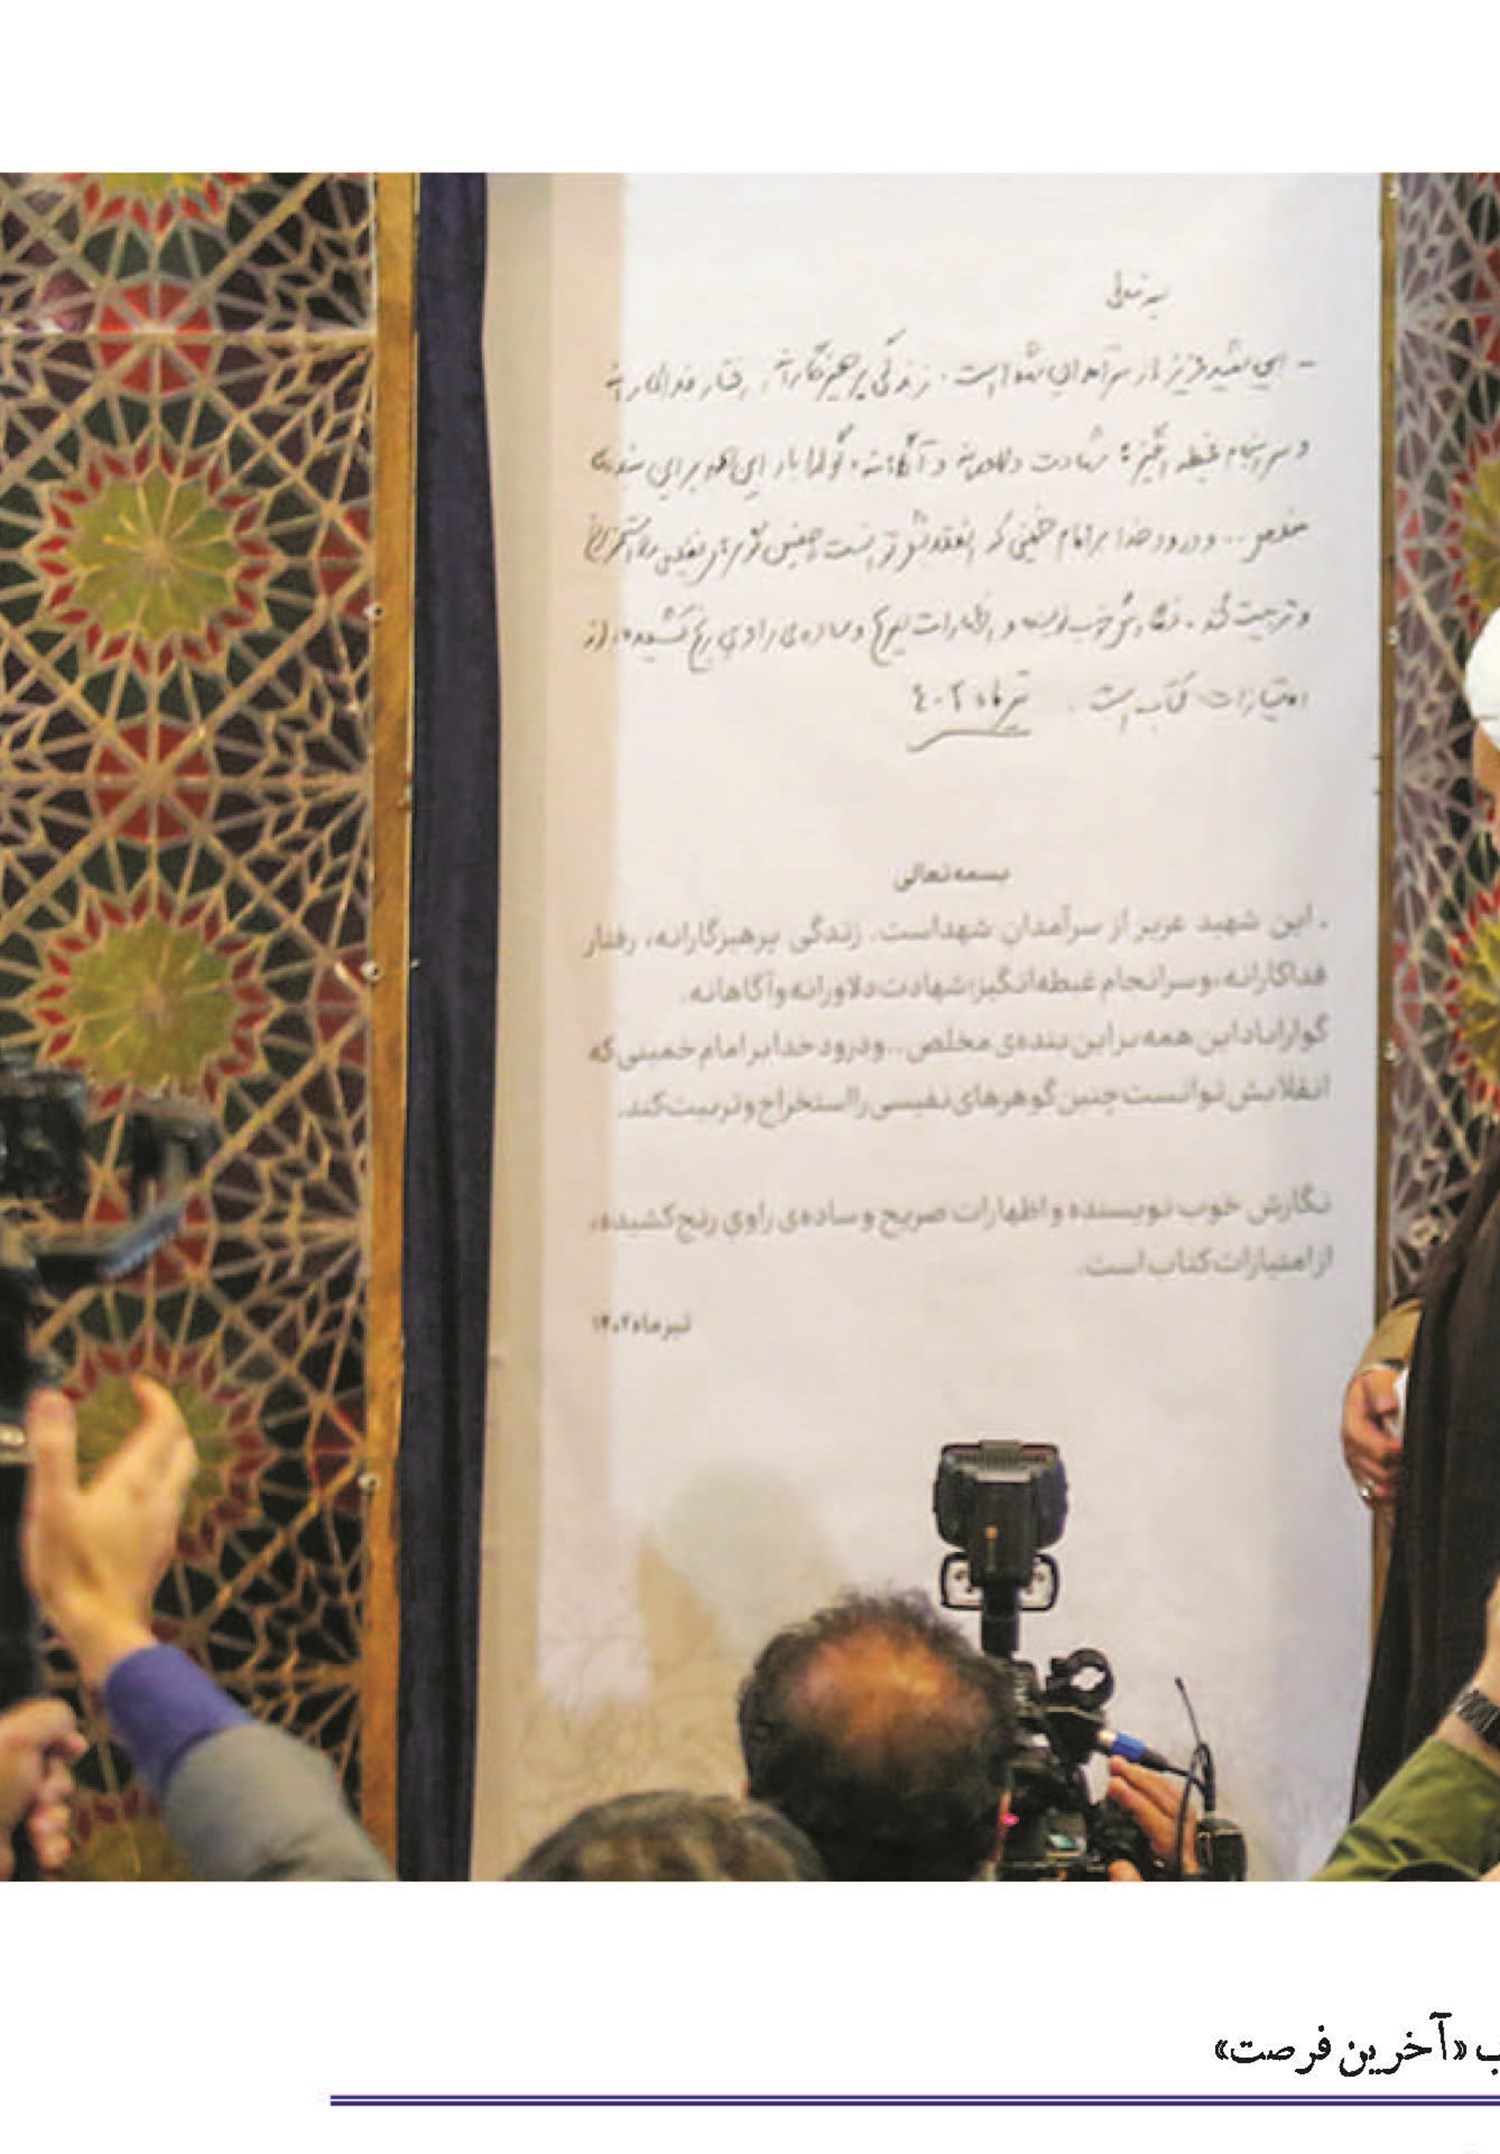 بسمه تعالی
- این شهید عزیز از سرآمدان شهدا است. زندگی پرهیزگارانه، رفتار فداکارانه
و سرانجام غبطه‌انگیز؛ شهادت دلاورانه و آگاهانه. گوارا باد این همه بر این بنده‌ی
مخلص... و درود خدا بر امام خمینی که انقلابش توانست چنین گوهرهای نفیسی را استخراج
و تربیت کند. نگارش خوب نویسنده و اظهارات صریح و ساده‌ی راوی رنج کشیده، از
امتیازات کتاب است. تیرماه ۴۰۲
بسمه تعالی
. این شهید عزیز از سرآمدان شهداست. زندگی پرهیزگارانه، رفتار
فداکارانه، و سرانجام غبطه‌انگیز؛ شهادت دلاورانه و آگاهانه.
گوارا باد این همه بر این بنده‌ی مخلص.. و درود خدا بر امام خمینی که
انقلابش توانست چنین گوهرهای نفیسی را استخراج و تربیت کند.
نگارش خوب نویسنده و اظهارات صریح و ساده‌ی راوی رنج‌کشیده،
از امتیازات کتاب است.
تیرماه ۱۴۰۲
«آخرین فرصت»